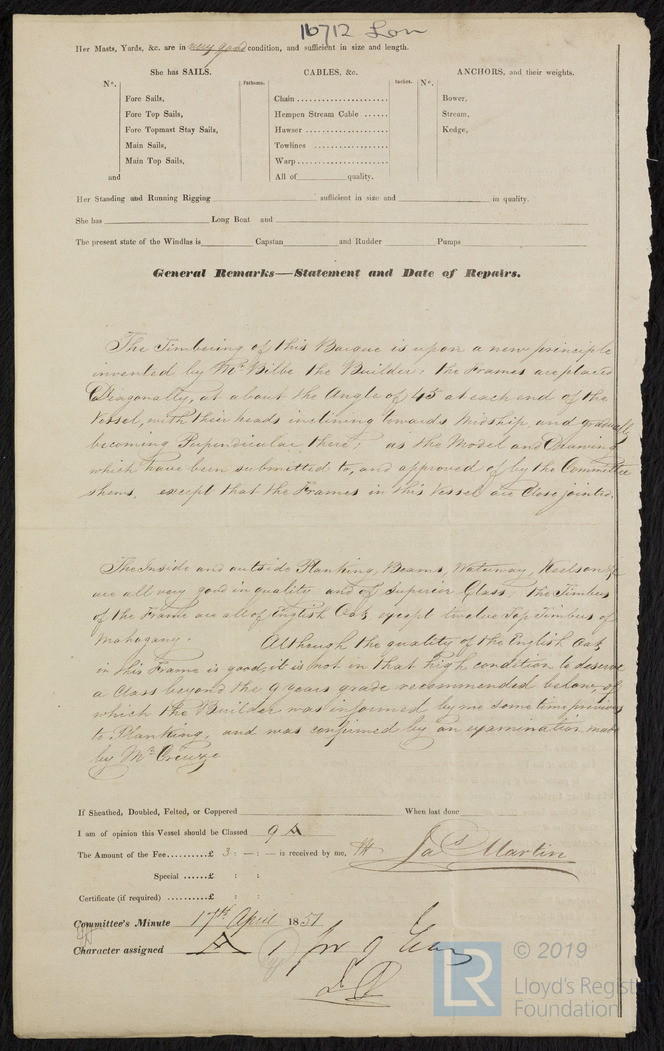 16712 Lon
Her Masts, Yards, &c. are in very good condition, and sufficient in size and length.
She has SAILS. CABLES, &c. ANCHORS, and their weights.
No. Fathoms. Inches. No.
Fore Sails, Chain Bower,
Fore Top Sails, Hempen Stream Cable Stream,
Fore Topmast Stay Sails, Hawser Kedge,
Main Sails, Towlines
Main Top Sails, Warp
and All of quality.
Her Standing and Running Rigging sufficient in size and in quality.
She has Long Boat and
The present state of the Windlas is Capstan and Rudder Pumps
General Remarks—Statement and Date of Repairs.
The Timbering of this Barque is upon a new principle
invented by Mr. Bilbe the Builder; the Frames are placed
Diagonally, at about the Angle of 45 at each end of the
Vessel, with their heads inclining towards Midship, and gradually
becoming Perpendicular there; as the Model and Drawing
which have been submitted to, and approved of by the Committee
shews. except that the Frames in this Vessel are Close jointed.
The Inside and outside Planking, Beams, Waterway, Keelson &c
are all very good in quality and of superior Class; the Timbers
of the Frame are all of English Oak, except twelve Top Timbers of
Mahogany. Although the quality of the English Oak
in this Frame is good, it is not in that high condition to deserve
a Class beyond the 9 years grade recommended below, of
which the Builder was informed by me some time previous
to Planking, and was confirmed by an examination made
by Mr. Creuze
If Sheathed, Doubled, Felted, or Coppered When last done
I am of opinion this Vessel should be Classed 9 A
The Amount of the Fee..........£ 3 : — : — is received by me, Jas Martin
Special ......£ : :
Certificate (if required) .........£ : :
Committee's Minute 17th April 1851
Character assigned A 1
© 2019
LR Lloyd's Register
Foundation